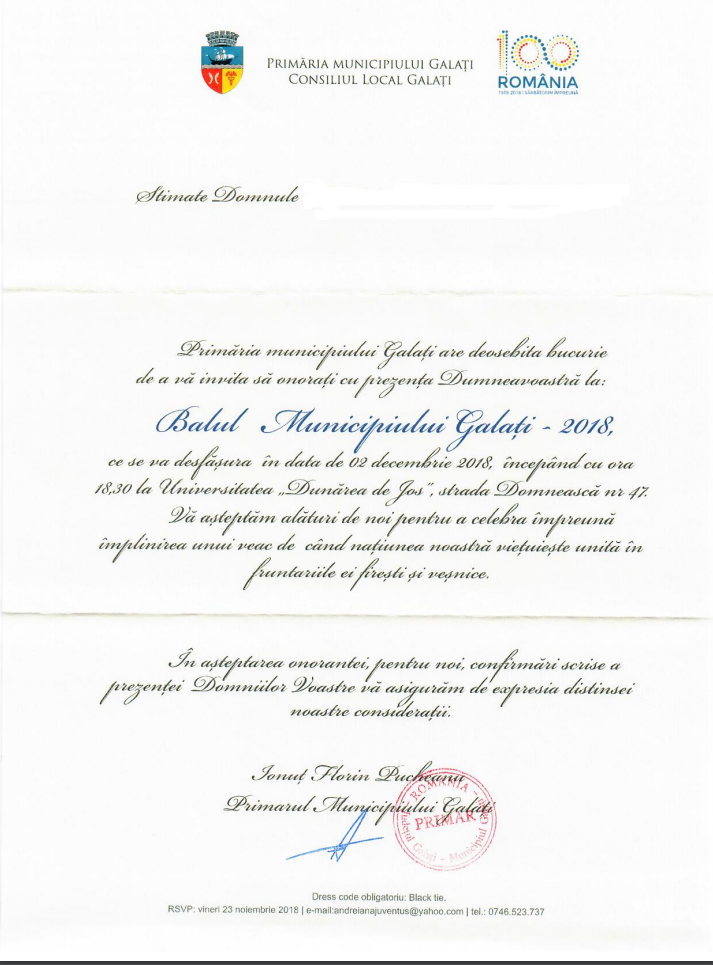 PRIMĂRIA MUNICIPIULUI GALAȚI
CONSILIUL LOCAL GALAȚI
100
ROMÂNIA
1918-2018 | SĂRBĂTORIM ÎMPREUNĂ
Stimate Domnule
Primăria municipiului Galați are deosebita bucurie
de a vă invita să onorați cu prezența Dumneavoastră la:
Balul Municipiului Galați - 2018,
ce se va desfășura în data de 02 decembrie 2018, începând cu ora
18,30 la Universitatea „Dunărea de Jos”, strada Domnească nr 47.
Vă așteptăm alături de noi pentru a celebra împreună
împlinirea unui veac de când națiunea noastră viețuiește unită în
fruntariile ei firești și veșnice.
În așteptarea onorantei, pentru noi, confirmări scrise a
prezenței Domniilor Voastre vă asigurăm de expresia distinsei
noastre considerații.
Ionuț Florin Pucheanu
Primarul Municipiului Galați
ROMÂNIA
PRIMAR
Județul Galați - Municipiul Galați
Dress code obligatoriu: Black tie.
RSVP: vineri 23 noiembrie 2018 | e-mail:andreianajuventus@yahoo.com | tel.: 0746.523.737